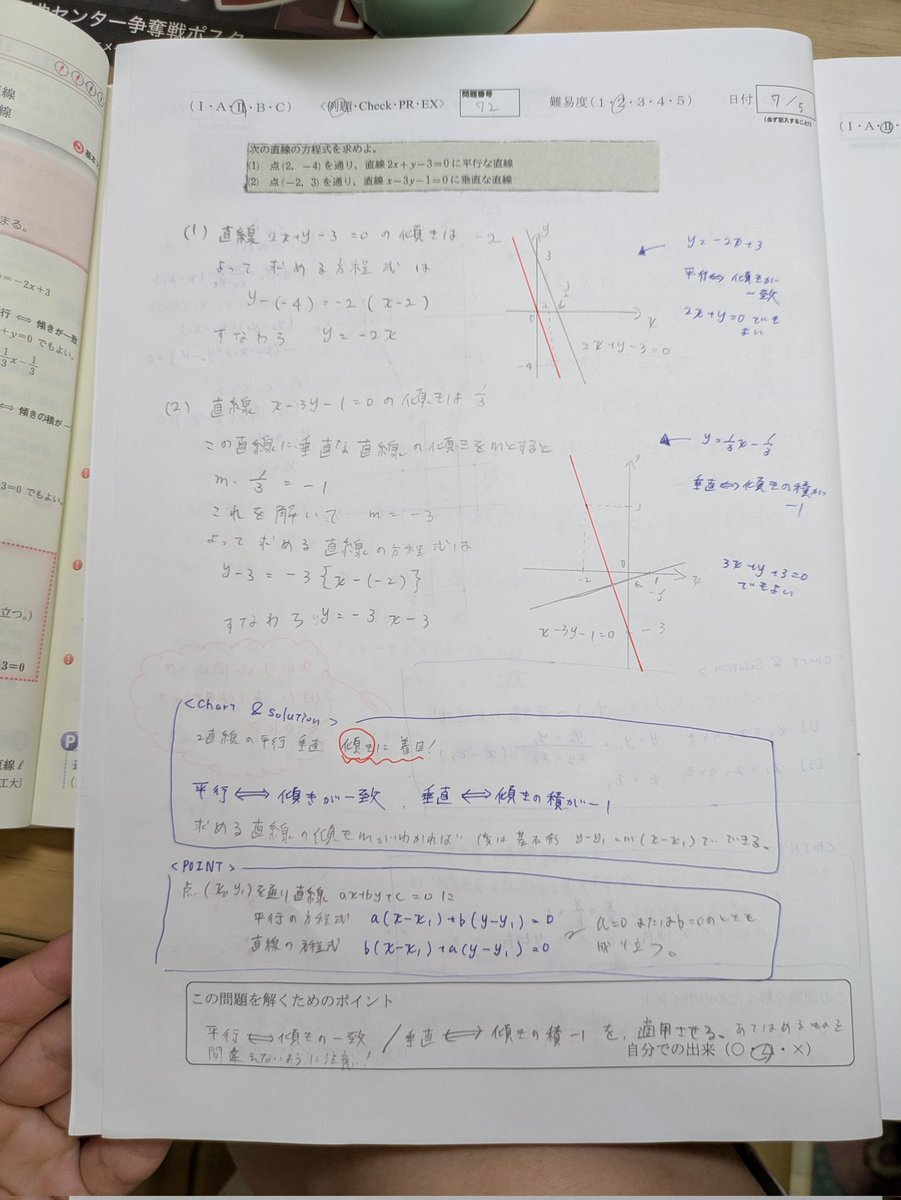 センター争奪戦ポスター
(I・A・II・B・C) <例題・Check・PR・EX> 問題番号 72 難易度(1・2・3・4・5) 日付 7/5
(必ず記入すること!)
次の直線の方程式を求めよ。
(1) 点(2, −4)を通り，直線 2x+y−3=0 に平行な直線
(2) 点(−2, 3)を通り，直線 x−3y−1=0 に垂直な直線
(1) 直線 2x+y−3=0 の傾きは −2
よって 求める方程式は
y−(−4)=−2(x−2)
すなわち y=−2x
y
3
3/2
0
2
x
−4
2x+y−3=0
y=−2x+3
平行⇔傾きが
一致
2x+y=0 でも
よい
(2) 直線 x−3y−1=0 の傾きは 1/3
この直線に垂直な直線の傾きをmとすると
m・1/3=−1
これを解いて m=−3
よって 求める直線の方程式は
y−3=−3{x−(−2)}
すなわち y=−3x−3
y
3
−2
0
1
x
−1/3
x−3y−1=0
−3
y=1/3x−1/3
垂直⇔傾きの積が
−1
3x+y+3=0
でもよい
<Chart & Solution>
2直線の平行 垂直 傾きに着目!
平行⇔傾きが一致, 垂直⇔傾きの積が−1
求める直線の傾きmがわかれば 後は基本形 y−y₁=m(x−x₁)でできる。
<POINT>
点(x₁,y₁)を通り直線 ax+by+c=0に
平行の方程式 a(x−x₁)+b(y−y₁)=0
直線の方程式 b(x−x₁)+a(y−y₁)=0
a=0 またはb=0のときも
成り立つ。
この問題を解くためのポイント
平行⇔傾きの一致/垂直⇔傾きの積−1を、適用させる。あてはめるのを
間違えないように注意!
自分での出来 (○・△・×)
(I・A・II
y=−2x+3
行 ⇔ 傾きが一致
+y=0 でもよい。
1/3x−1/3
⇔ 傾きの積が−
3=0 でもよい。
立つ。)
3=0
P
直線 ℓ
工大]